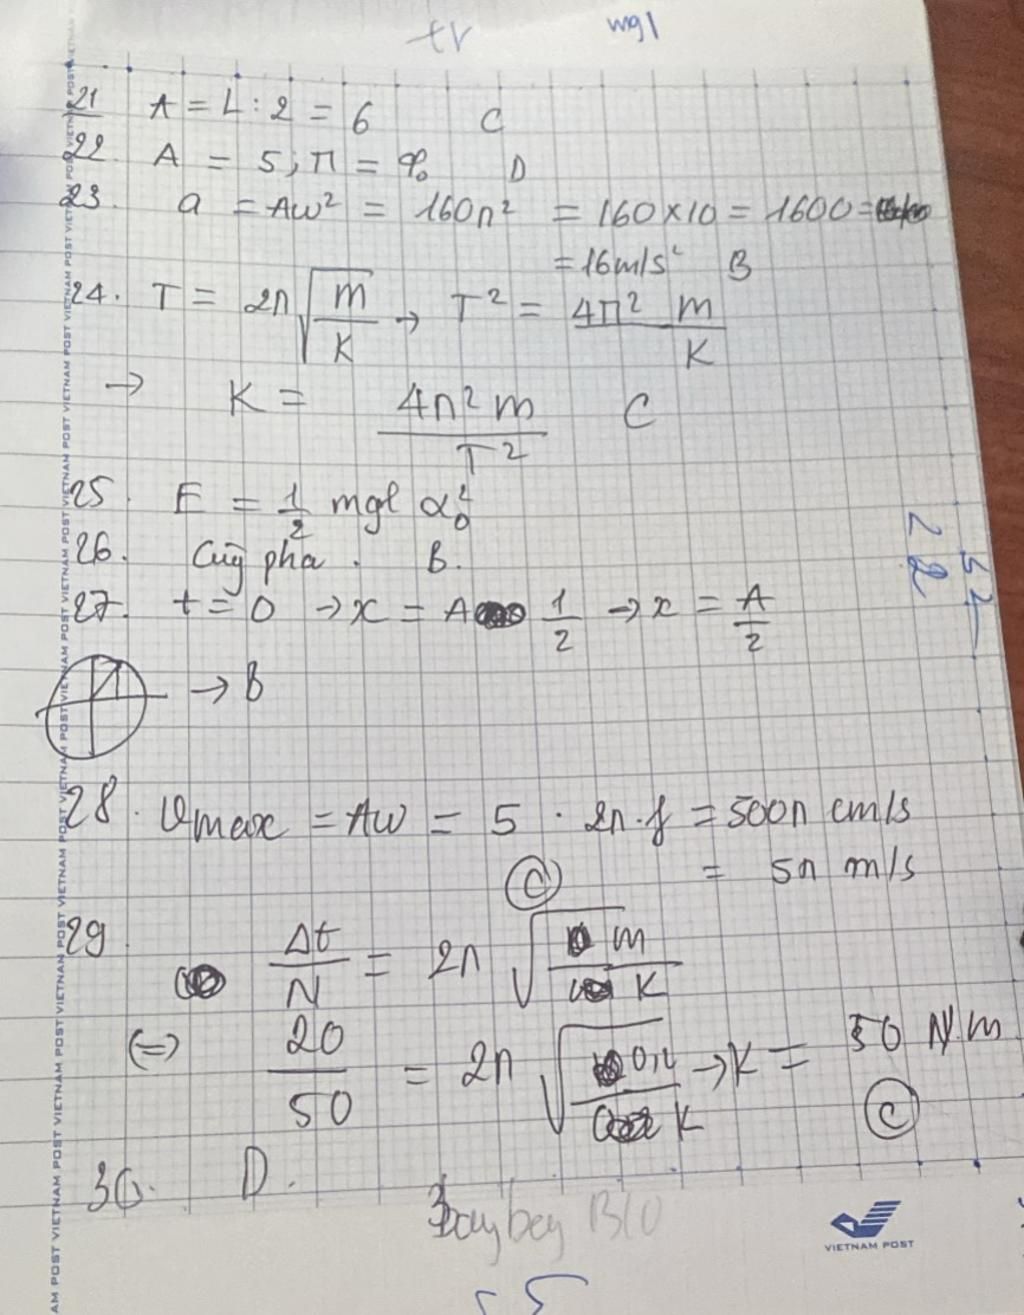 tr mgl
21 A = L : 2 = 6 C
22. A = 5, π = % D
23. a = Aw² = 160π² = 160×10 = 1600 =
= 16m/s² B
24. T = 2π√(m/K) → T² = 4π² m/K
→ K = 4π² m/T² C
25. E = 1/2 mgl α₀²
26. Cùg pha. B.
27. t = 0 → x = A 1/2 → x = A/2
→ B
28. vmax = Aw = 5 . 2π.f = 500π cm/s
C = 5π m/s
29 Δt/N = 2π√(m/K)
(=) 20/50 = 2π√(0,2/K) → K = 50 N/m
C
30. D.
VIETNAM POST